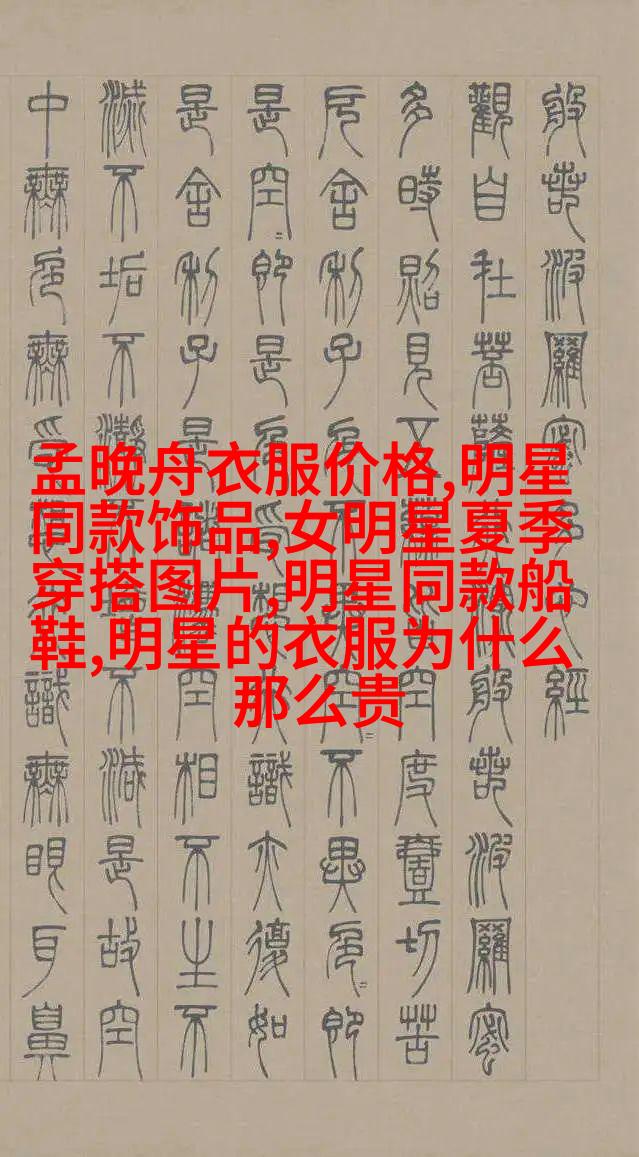 般若波羅蜜多心經
觀自在菩薩行深般若波羅蜜
多時照見五蘊皆空度壹切苦
厄舍利子色不異空=不異色=即
是空=即是色受想行識亦復如
是舍利子是諸法空相不生不
滅不垢不淨不增不減是故空
中無色無受想行識無眼耳鼻
孟晚舟衣服价格,明星
同款饰品,女明星夏季
穿搭图片,明星同款船
鞋,明星的衣服为什么
那么贵